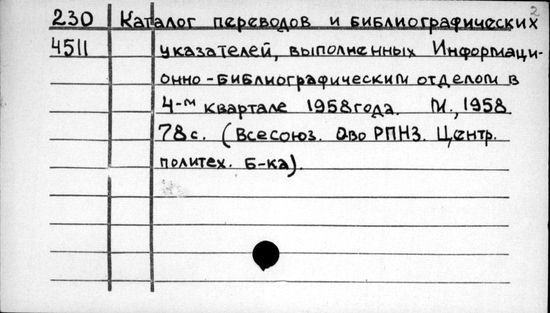 2
230 Каталог переводов и библиографических
4511 указателей, выполненных Информаци-
онно-библиографическим отделом в
4-м квартале 1958 года. М., 1958
78 с. (Всесоюз. О-во РПНЗ. Центр.
политех. Б-ка).